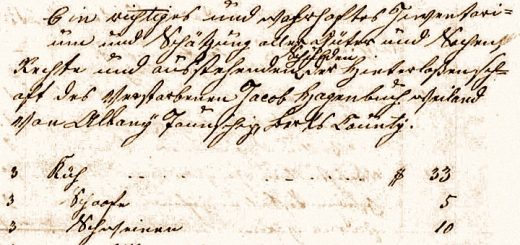 Ein richtiges und wahrhaftes Inventari-
um und Schätzung aller Güter und Sachen
Rechte und ausstehenden Schulden der Hinterlassensch-
aft des verstorbenen Jacob Hagenbuch weiland
von Albany Taunschip, Berks County.
3 Küh $ 33
3 Schaafe 5
3 Schweinen 10